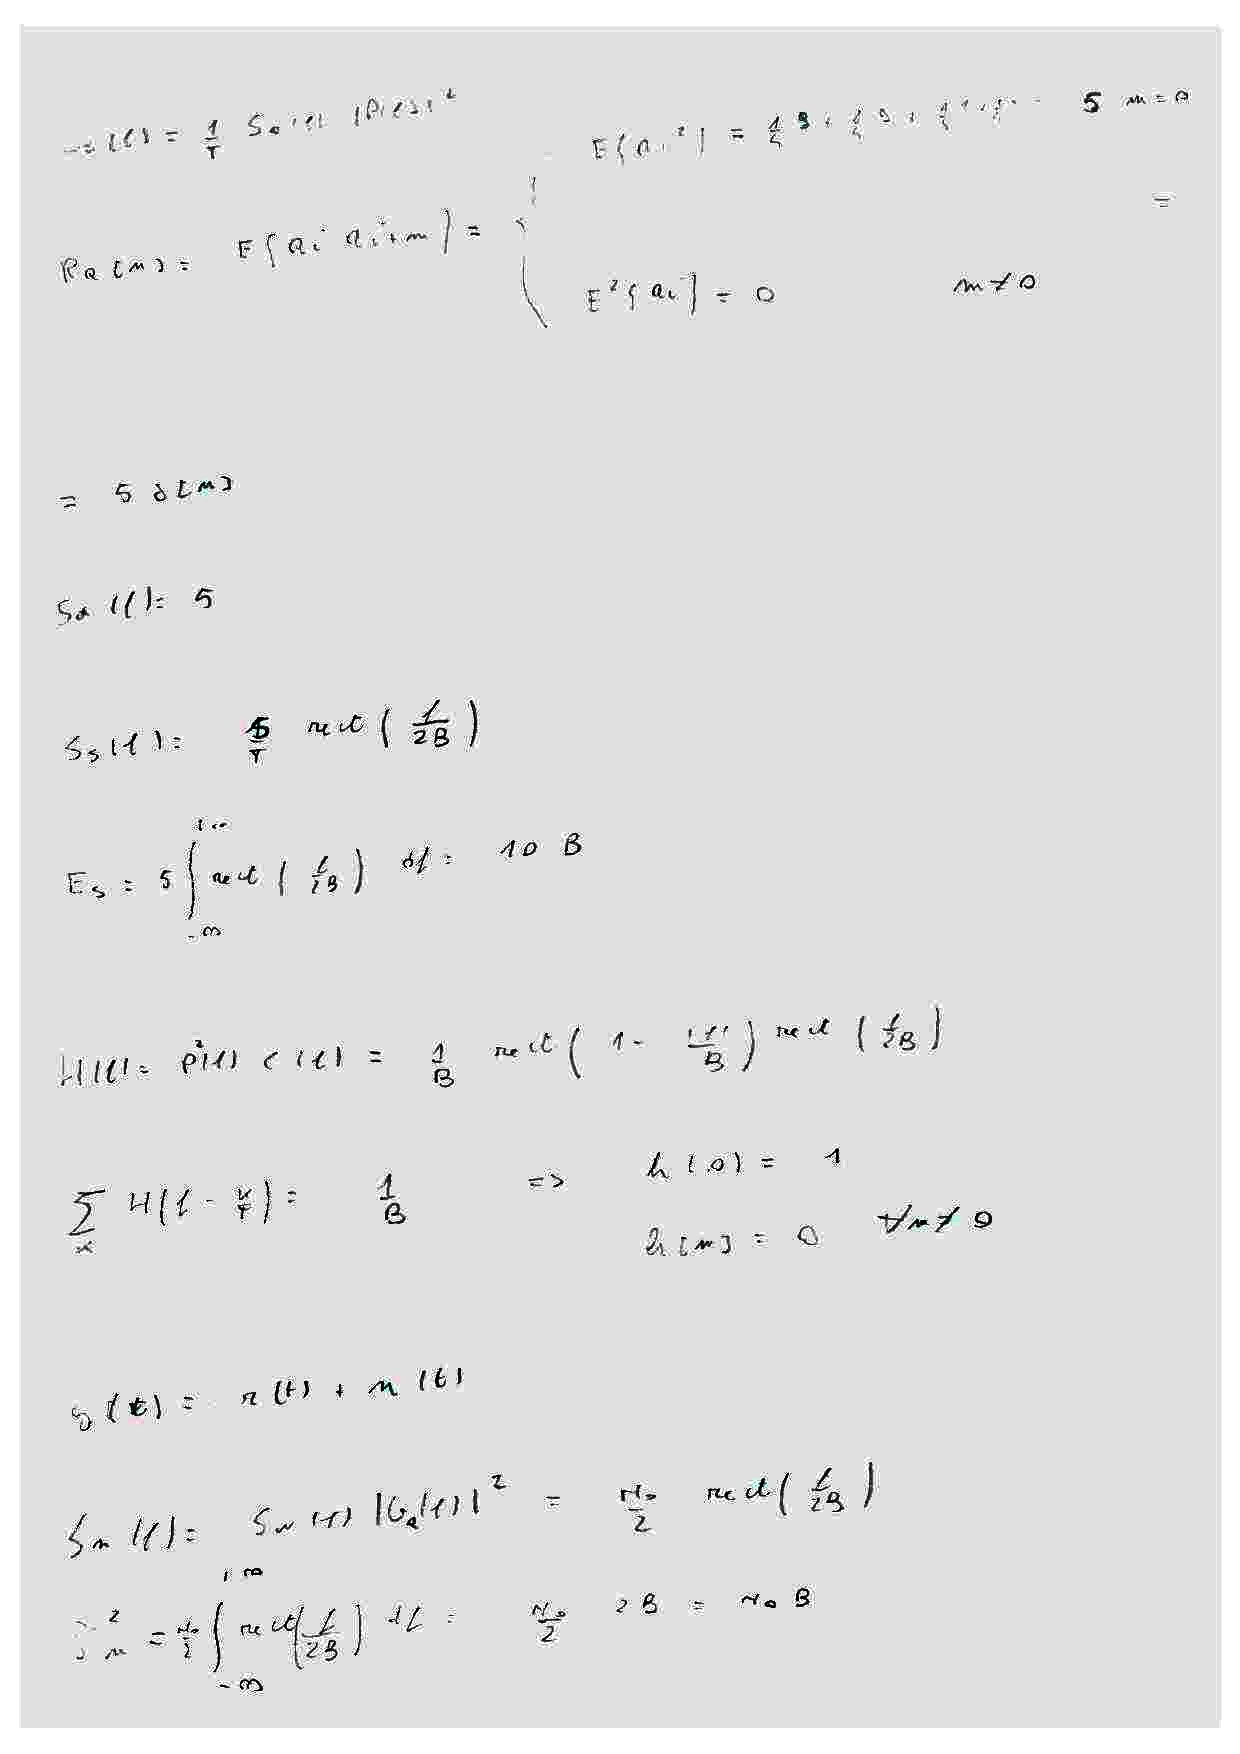 (f) = 1/T Sa(f) |P(f)|²
E{ai²} = 1/4 9 + 1/4 9 + 1/4 1 + 5 m=0
Ra[m] = E{ai ai+m} = { =
E²{ai} = 0 m≠0
= 5 δ[m]
Sa(f) = 5
Ss(f) = 5/T rect(f/2B)
Es = 5 ∫_{-∞}^{+∞} rect(f/2B) df = 10 B
H(f) = P²(f) C(f) = 1/B rect(1 - |f|/B) rect(f/2B)
∑_k H(f - k/T) = 1/B => h(0) = 1
h[m] = 0 ∀m≠0
y(t) = r(t) + n(t)
Sn(f) = Sw(f) |GR(f)|² = N0/2 rect(f/2B)
σn² = N0/2 ∫_{-∞}^{+∞} rect(f/2B) df = N0/2 2B = N0 B